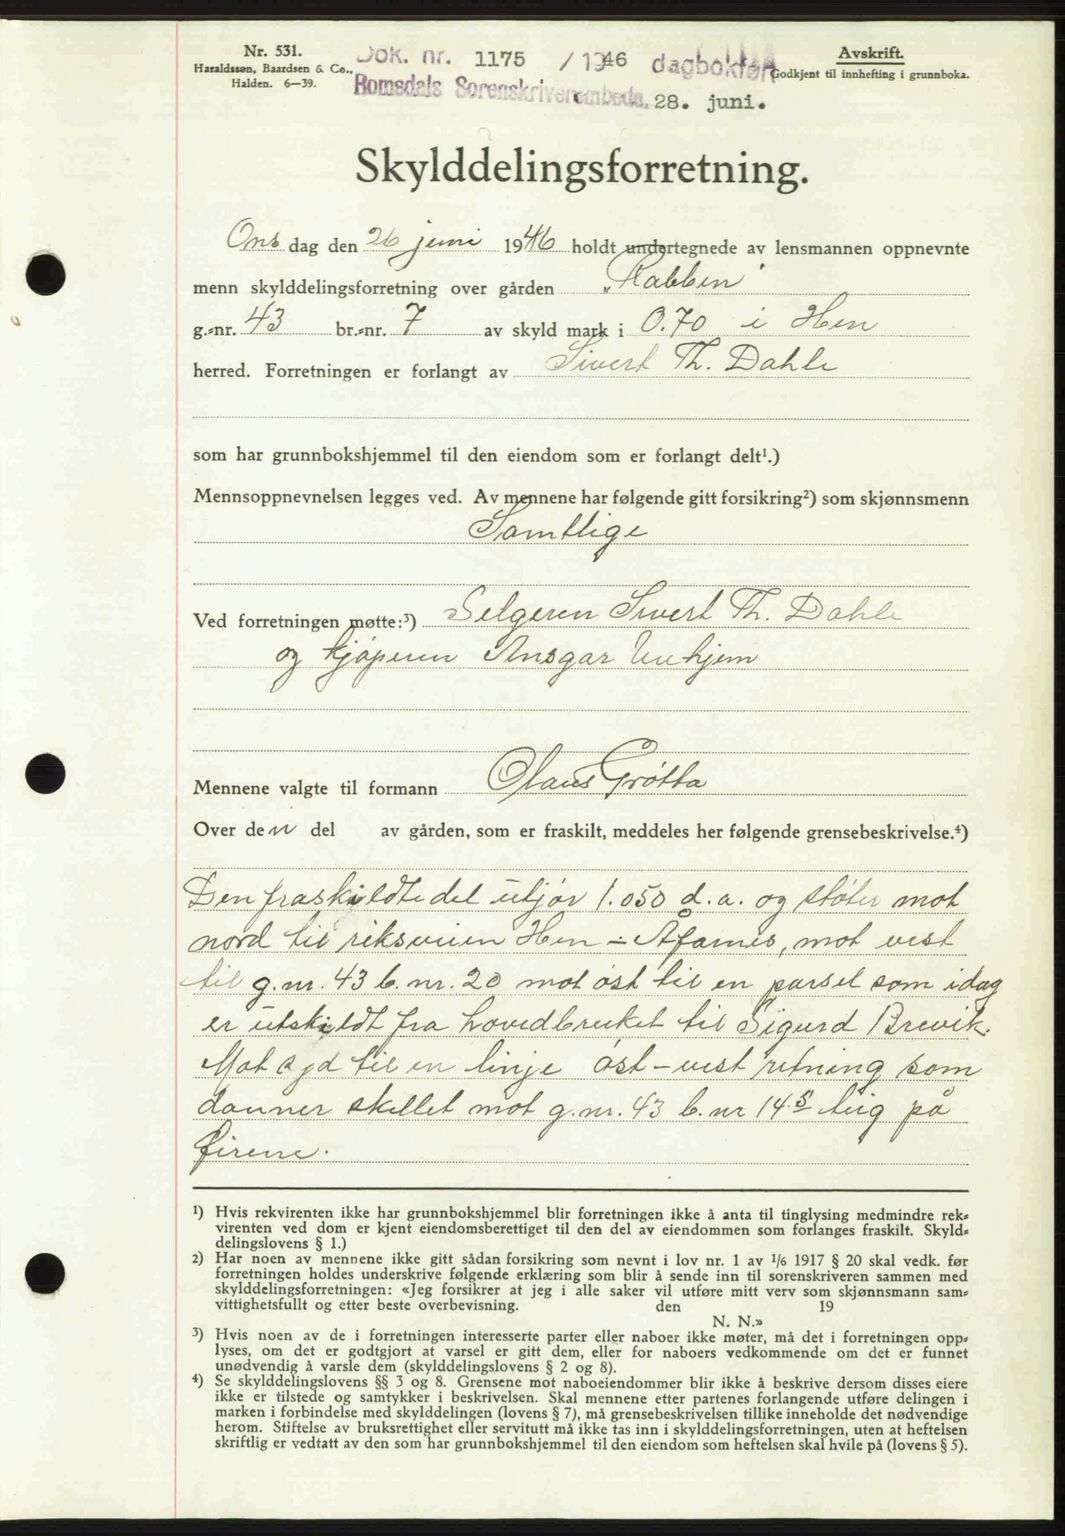 Nr. 531.
Haraldssøn, Baardsen & Co.,
Halden. 6—39.
Dok. nr. 1175 / 1946 dagbokført
Romsdals Sorenskriverembede. 28. juni.
Avskrift.
Godkjent til innhefting i grunnboka.
Skylddelingsforretning.
Onsdag den 26 juni 1946 holdt undertegnede av lensmannen oppnevnte
menn skylddelingsforretning over gården „Rabben"
g.-nr. 43 br.-nr. 7 av skyld mark i 0.70 i Hen
herred. Forretningen er forlangt av Sivert Th. Dahle
som har grunnbokshjemmel til den eiendom som er forlangt delt¹.)
Mennsoppnevnelsen legges ved. Av mennene har følgende gitt forsikring²) som skjønnsmenn
Samtlige
Ved forretningen møtte:³) Selgeren Sivert Th. Dahle
og kjøperen Ansgar Unhjem
Mennene valgte til formann Olaus Grøtta
Over den del av gården, som er fraskilt, meddeles her følgende grensebeskrivelse.⁴)
Den fraskildte del utjør 1.050 d.a. og støter mot
nord til riksveien Hen - Åfarnes, mot vest
til g.nr. 43 b.nr. 20 mot øst til en parsel som idag
er utskildt fra hovedbruket til Sigurd Brevik.
Mot syd til en linje øst - vest retning som
danner skillet mot g.nr. 43 b.nr 14.5 teig på
Øirene.
¹) Hvis rekvirenten ikke har grunnbokshjemmel blir forretningen ikke å anta til tinglysing medmindre rek-
virenten ved dom er kjent eiendomsberettiget til den del av eiendommen som forlanges fraskilt. Skyld-
delingslovens § 1.)
²) Har noen av mennene ikke gitt sådan forsikring som nevnt i lov nr. 1 av 1/6 1917 § 20 skal vedk. før
forretningen holdes underskrive følgende erklæring som blir å sende inn til sorenskriveren sammen med
skylddelingsforretningen: «Jeg forsikrer at jeg i alle saker vil utføre mitt verv som skjønnsmann sam-
vittighetsfullt og etter beste overbevisning. den 19
N. N.»
³) Hvis noen av de i forretningen interesserte parter eller naboer ikke møter, må det i forretningen opp-
lyses, om det er godtgjort at varsel er gitt dem, eller for naboers vedkommende om det er funnet
unødvendig å varsle dem (skylddelingslovens § 2 og 8).
⁴) Se skylddelingslovens §§ 3 og 8. Grensene mot naboeiendommer blir ikke å beskrive dersom disses eiere
ikke er tilstede og samtykker i beskrivelsen. Skal mennene etter partenes forlangende utføre delingen i
marken i forbindelse med skylddelingen (lovens § 7), må grensebeskrivelsen tillike inneholde det nødvendige
herom. Stiftelse av bruksrettighet eller servitutt må ikke tas inn i skylddelingsforretningen, uten at heftelsen
skriftlig er vedtatt av den som har grunnbokshjemmel til den eiendom som heftelsen skal hvile på (lovens § 5).